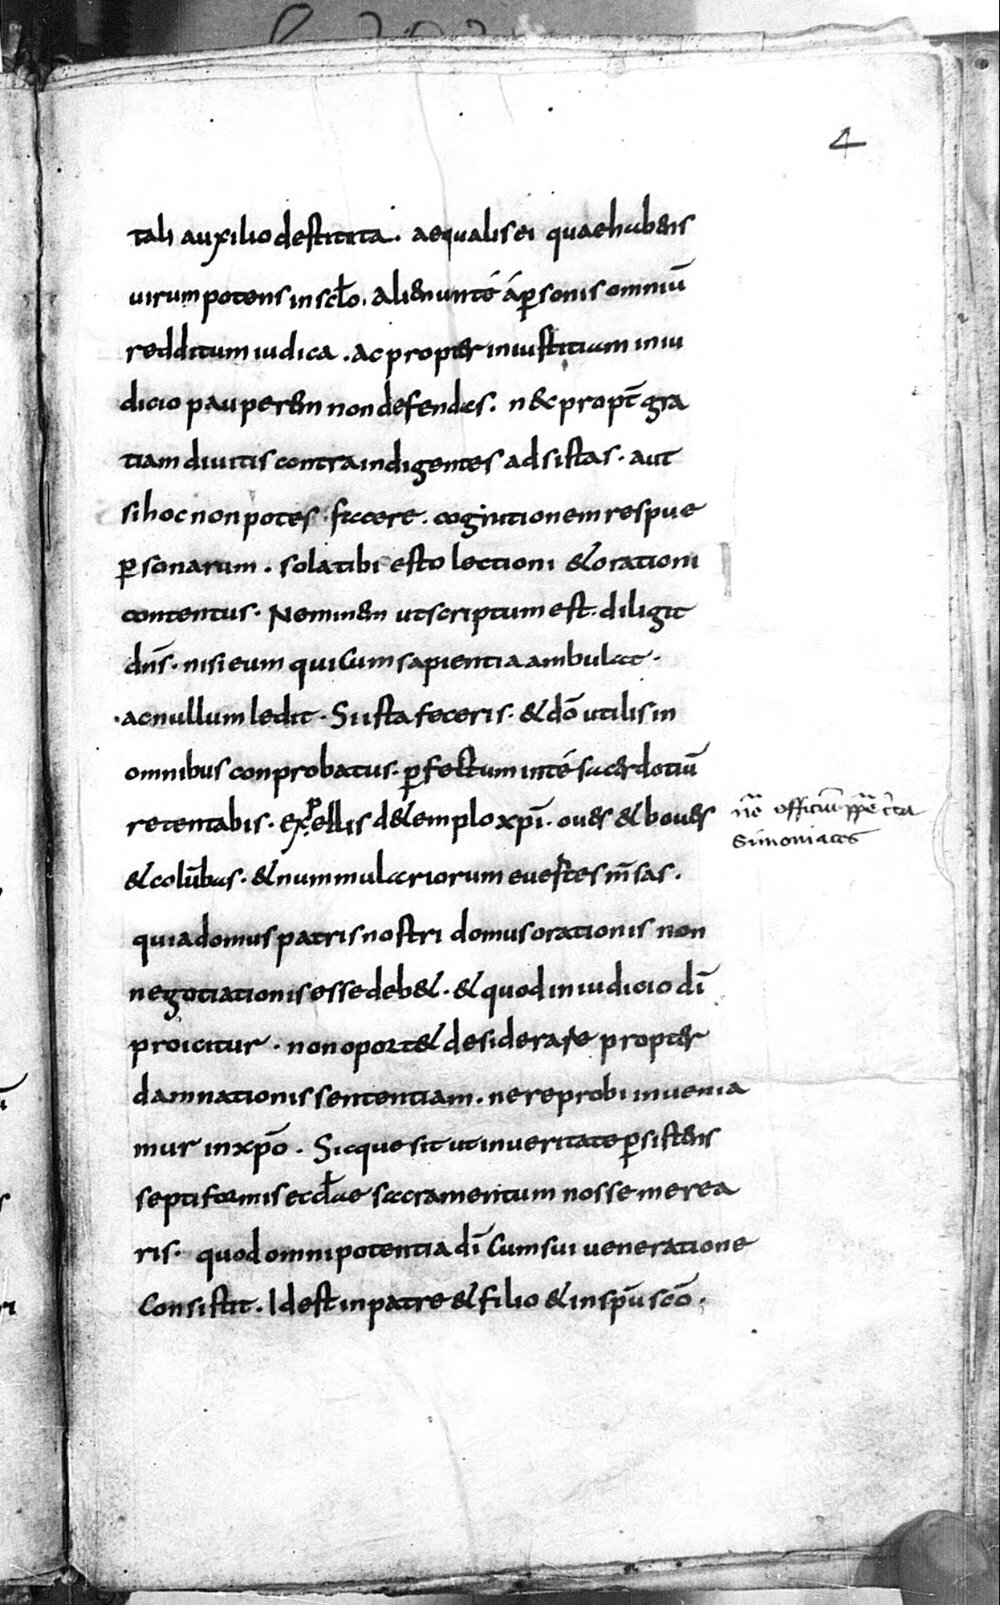 4
tali auxilio destituta. aequalis ei quae habens
uirum potens in sclo. alienunté á psonis omniū
redditum iudica. ac propter iniustitiam in iu
dicio pauperem non defendas. nec propt̄ gra
tiam diuitis contra indigentes adsistas. aut
si hoc non potes facere. cognitionem respue
psonarum. sola tibi esto lectioni & orationi
contentus. Neminem ut scriptum est. diligit
dn̄s. nisi eum qui cum sapientia ambulat.
ac nullum ledit. Si ista feceris. & dō utilis in
omnibus conprobatus. pfectum in té sacerdotiū
retentabis. expellis de templo xp̄i. oues & boues
& colūbas. & nummulariorum euertes m̄sas.
quia domus patris nostri domus orationis non
negotiationis esse deb&. & quod in iudicio dī
proicitur. non oport& desiderare propter
damnationis sententiam. ne reprobi inuenia
mur in xp̄o. Sicque sit ut in ueritate psistens
septiformis eccl̄ae sacramentum nosse merea
ris. quod omnipotentia dī cum sui ueneratione
consistit. Id est in patre & filio & in sp̄u scō.
officiū
simoniacos